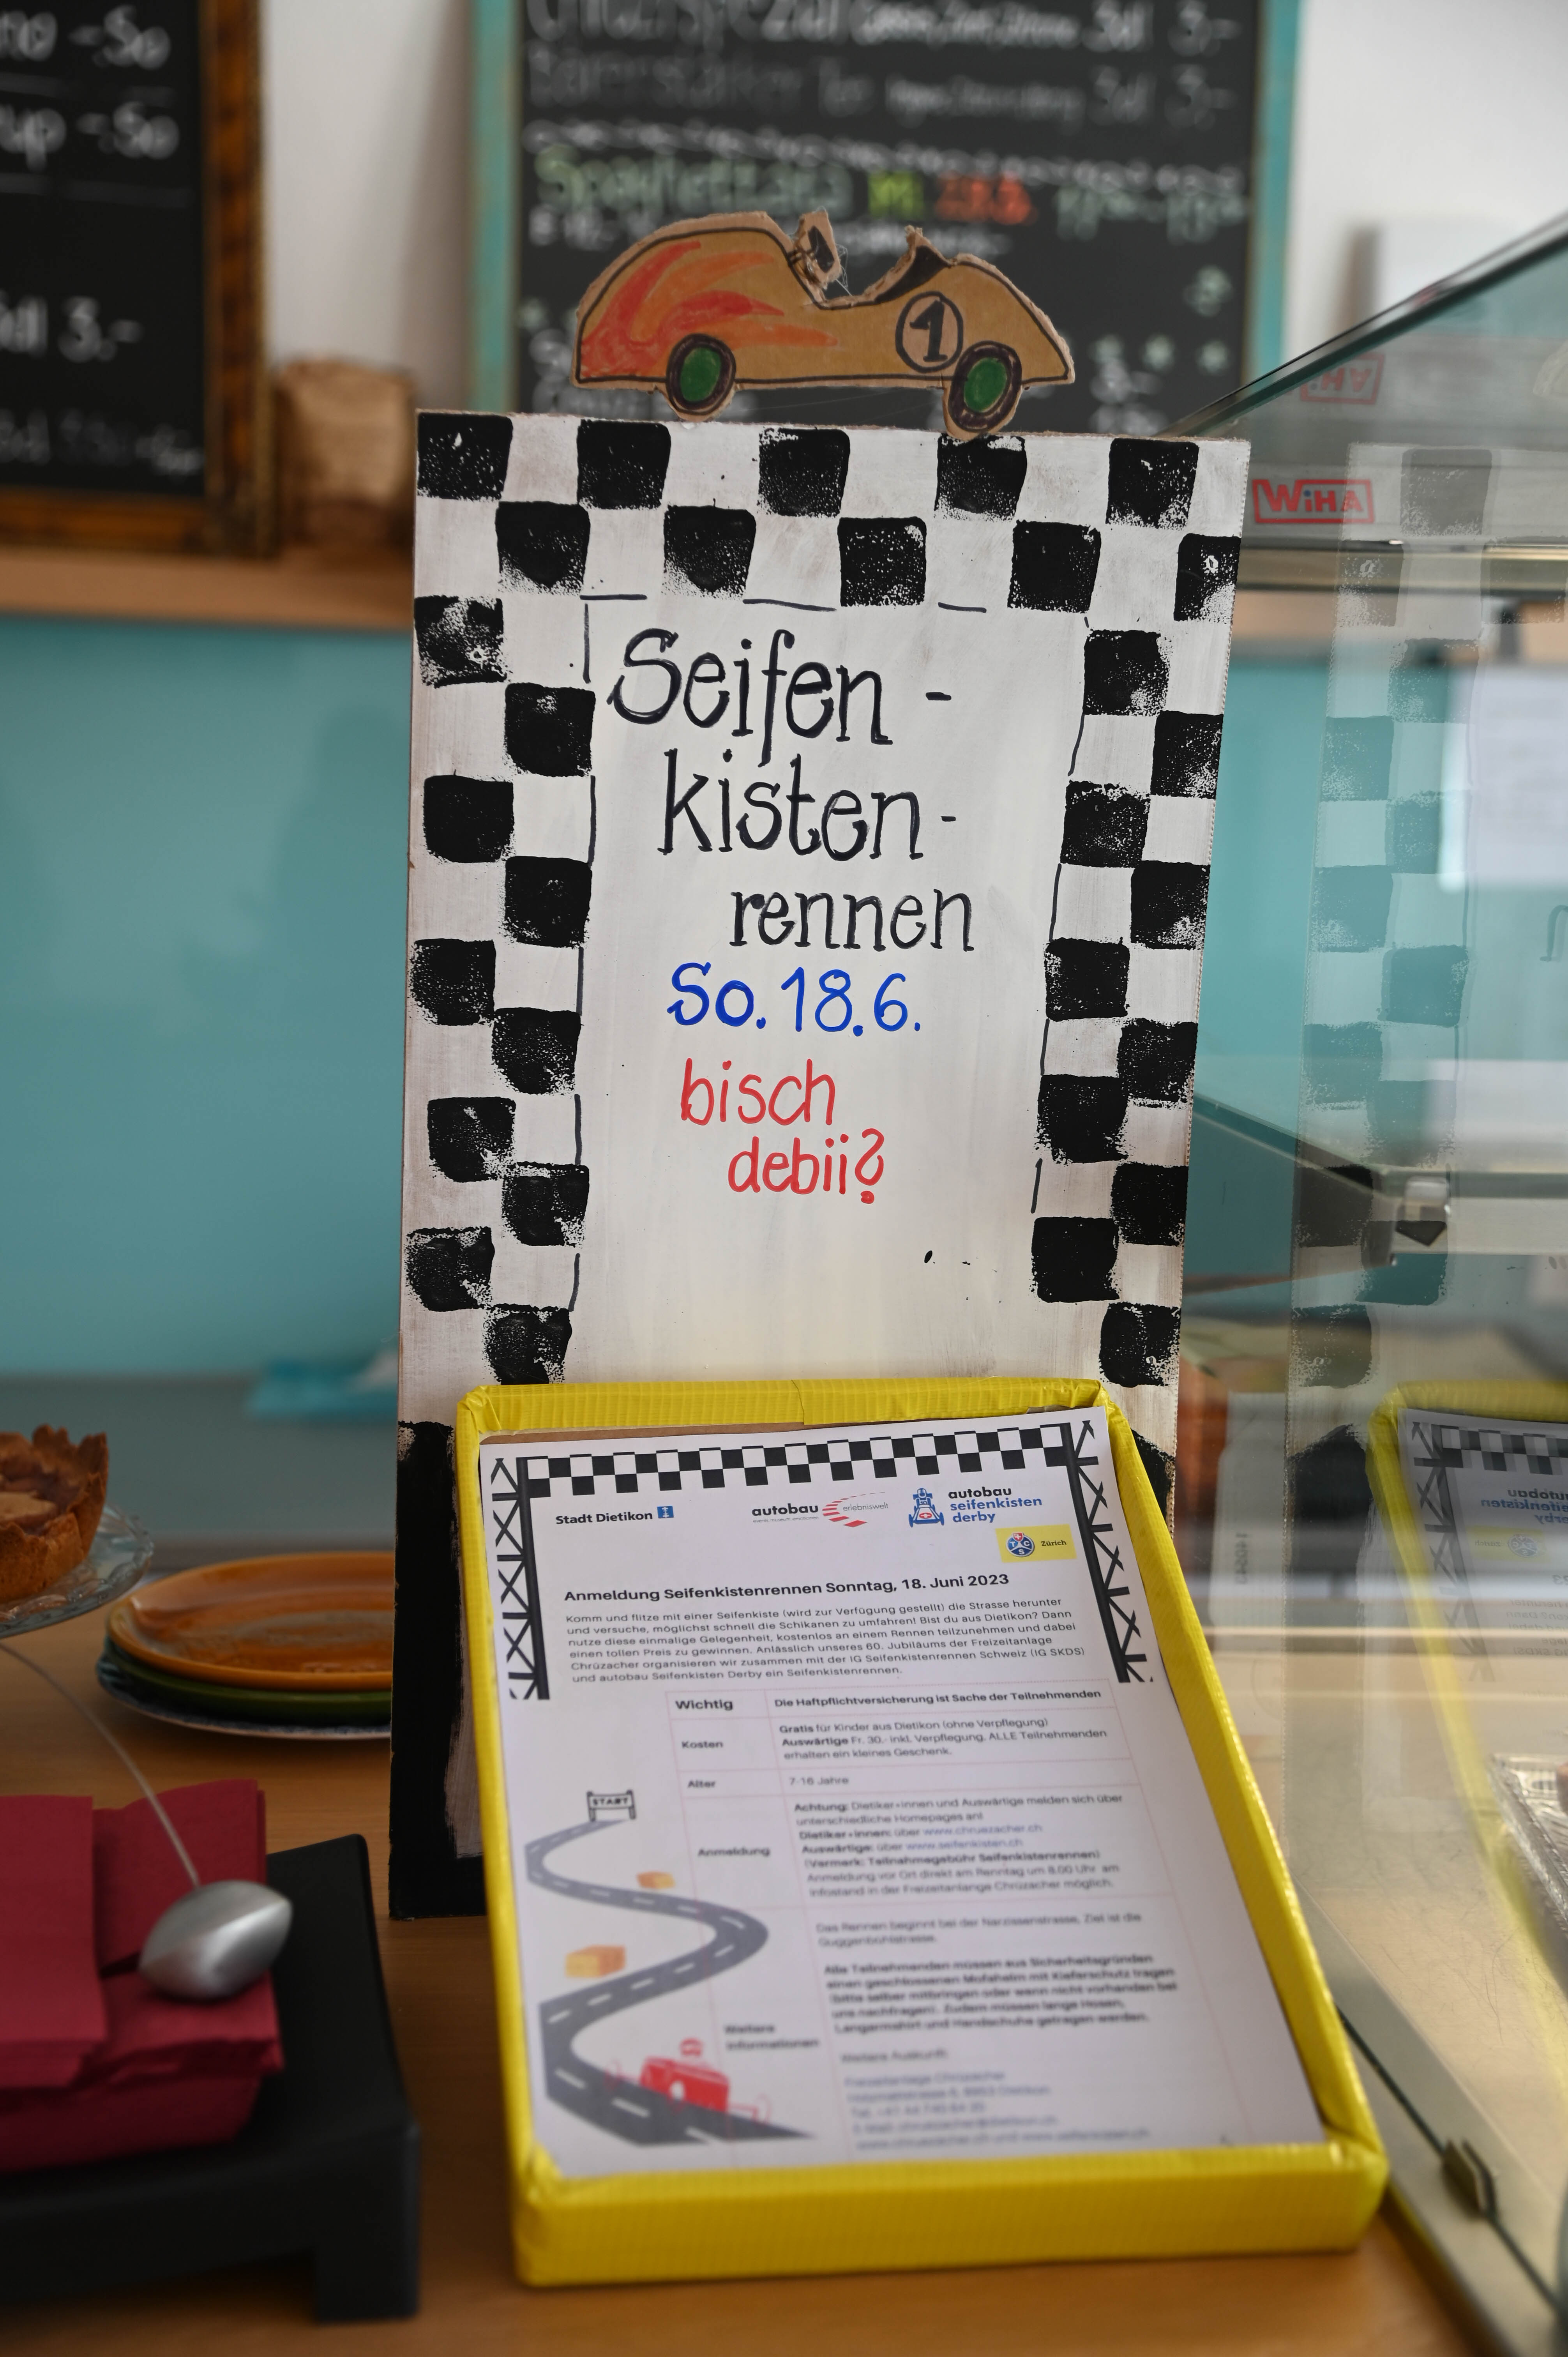 -.So
up -.So
3.-
3dl 3.-
3dl 3.-
1
WiHA
Seifen -
kisten -
rennen
So. 18.6.
bisch
debii?
Stadt Dietikon
autobau erlebniswelt
autobau
seifenkisten
derby
TCS Zürich
Anmeldung Seifenkistenrennen Sonntag, 18. Juni 2023
Komm und flitze mit einer Seifenkiste (wird zur Verfügung gestellt) die Strasse herunter
und versuche, möglichst schnell die Schikanen zu umfahren! Bist du aus Dietikon? Dann
nutze diese einmalige Gelegenheit, kostenlos an einem Rennen teilzunehmen und dabei
einen tollen Preis zu gewinnen. Anlässlich unseres 60. Jubiläums der Freizeitanlage
Chrüzacher organisieren wir zusammen mit der IG Seifenkistenrennen Schweiz (IG SKDS)
und autobau Seifenkisten Derby ein Seifenkistenrennen.
Wichtig Die Haftpflichtversicherung ist Sache der Teilnehmenden
Kosten Gratis für Kinder aus Dietikon (ohne Verpflegung)
Auswärtige Fr. 30.- inkl. Verpflegung. ALLE Teilnehmenden
erhalten ein kleines Geschenk.
Alter 7-16 Jahre
START
Anmeldung Achtung: Dietiker*innen und Auswärtige melden sich über
unterschiedliche Homepages an!
Dietiker*innen: über www.chruezacher.ch
Auswärtige: über www.seifenkisten.ch
(Vermerk: Teilnahmegebühr Seifenkistenrennen)
Anmeldung vor Ort direkt am Renntag um 8.00 Uhr am
Infostand in der Freizeitanlange Chrüzacher möglich.
Das Rennen beginnt bei der Narzissenstrasse, Ziel ist die
Guggenbühlstrasse.
Weitere
Informationen
Alle Teilnehmenden müssen aus Sicherheitsgründen
einen geschlossenen Mofahelm mit Kieferschutz tragen
(bitte selber mitbringen oder wenn nicht vorhanden bei
uns nachfragen). Zudem müssen lange Hosen,
Langarmshirt und Handschuhe getragen werden.
Weitere Auskunft:
Freizeitanlage Chrüzacher